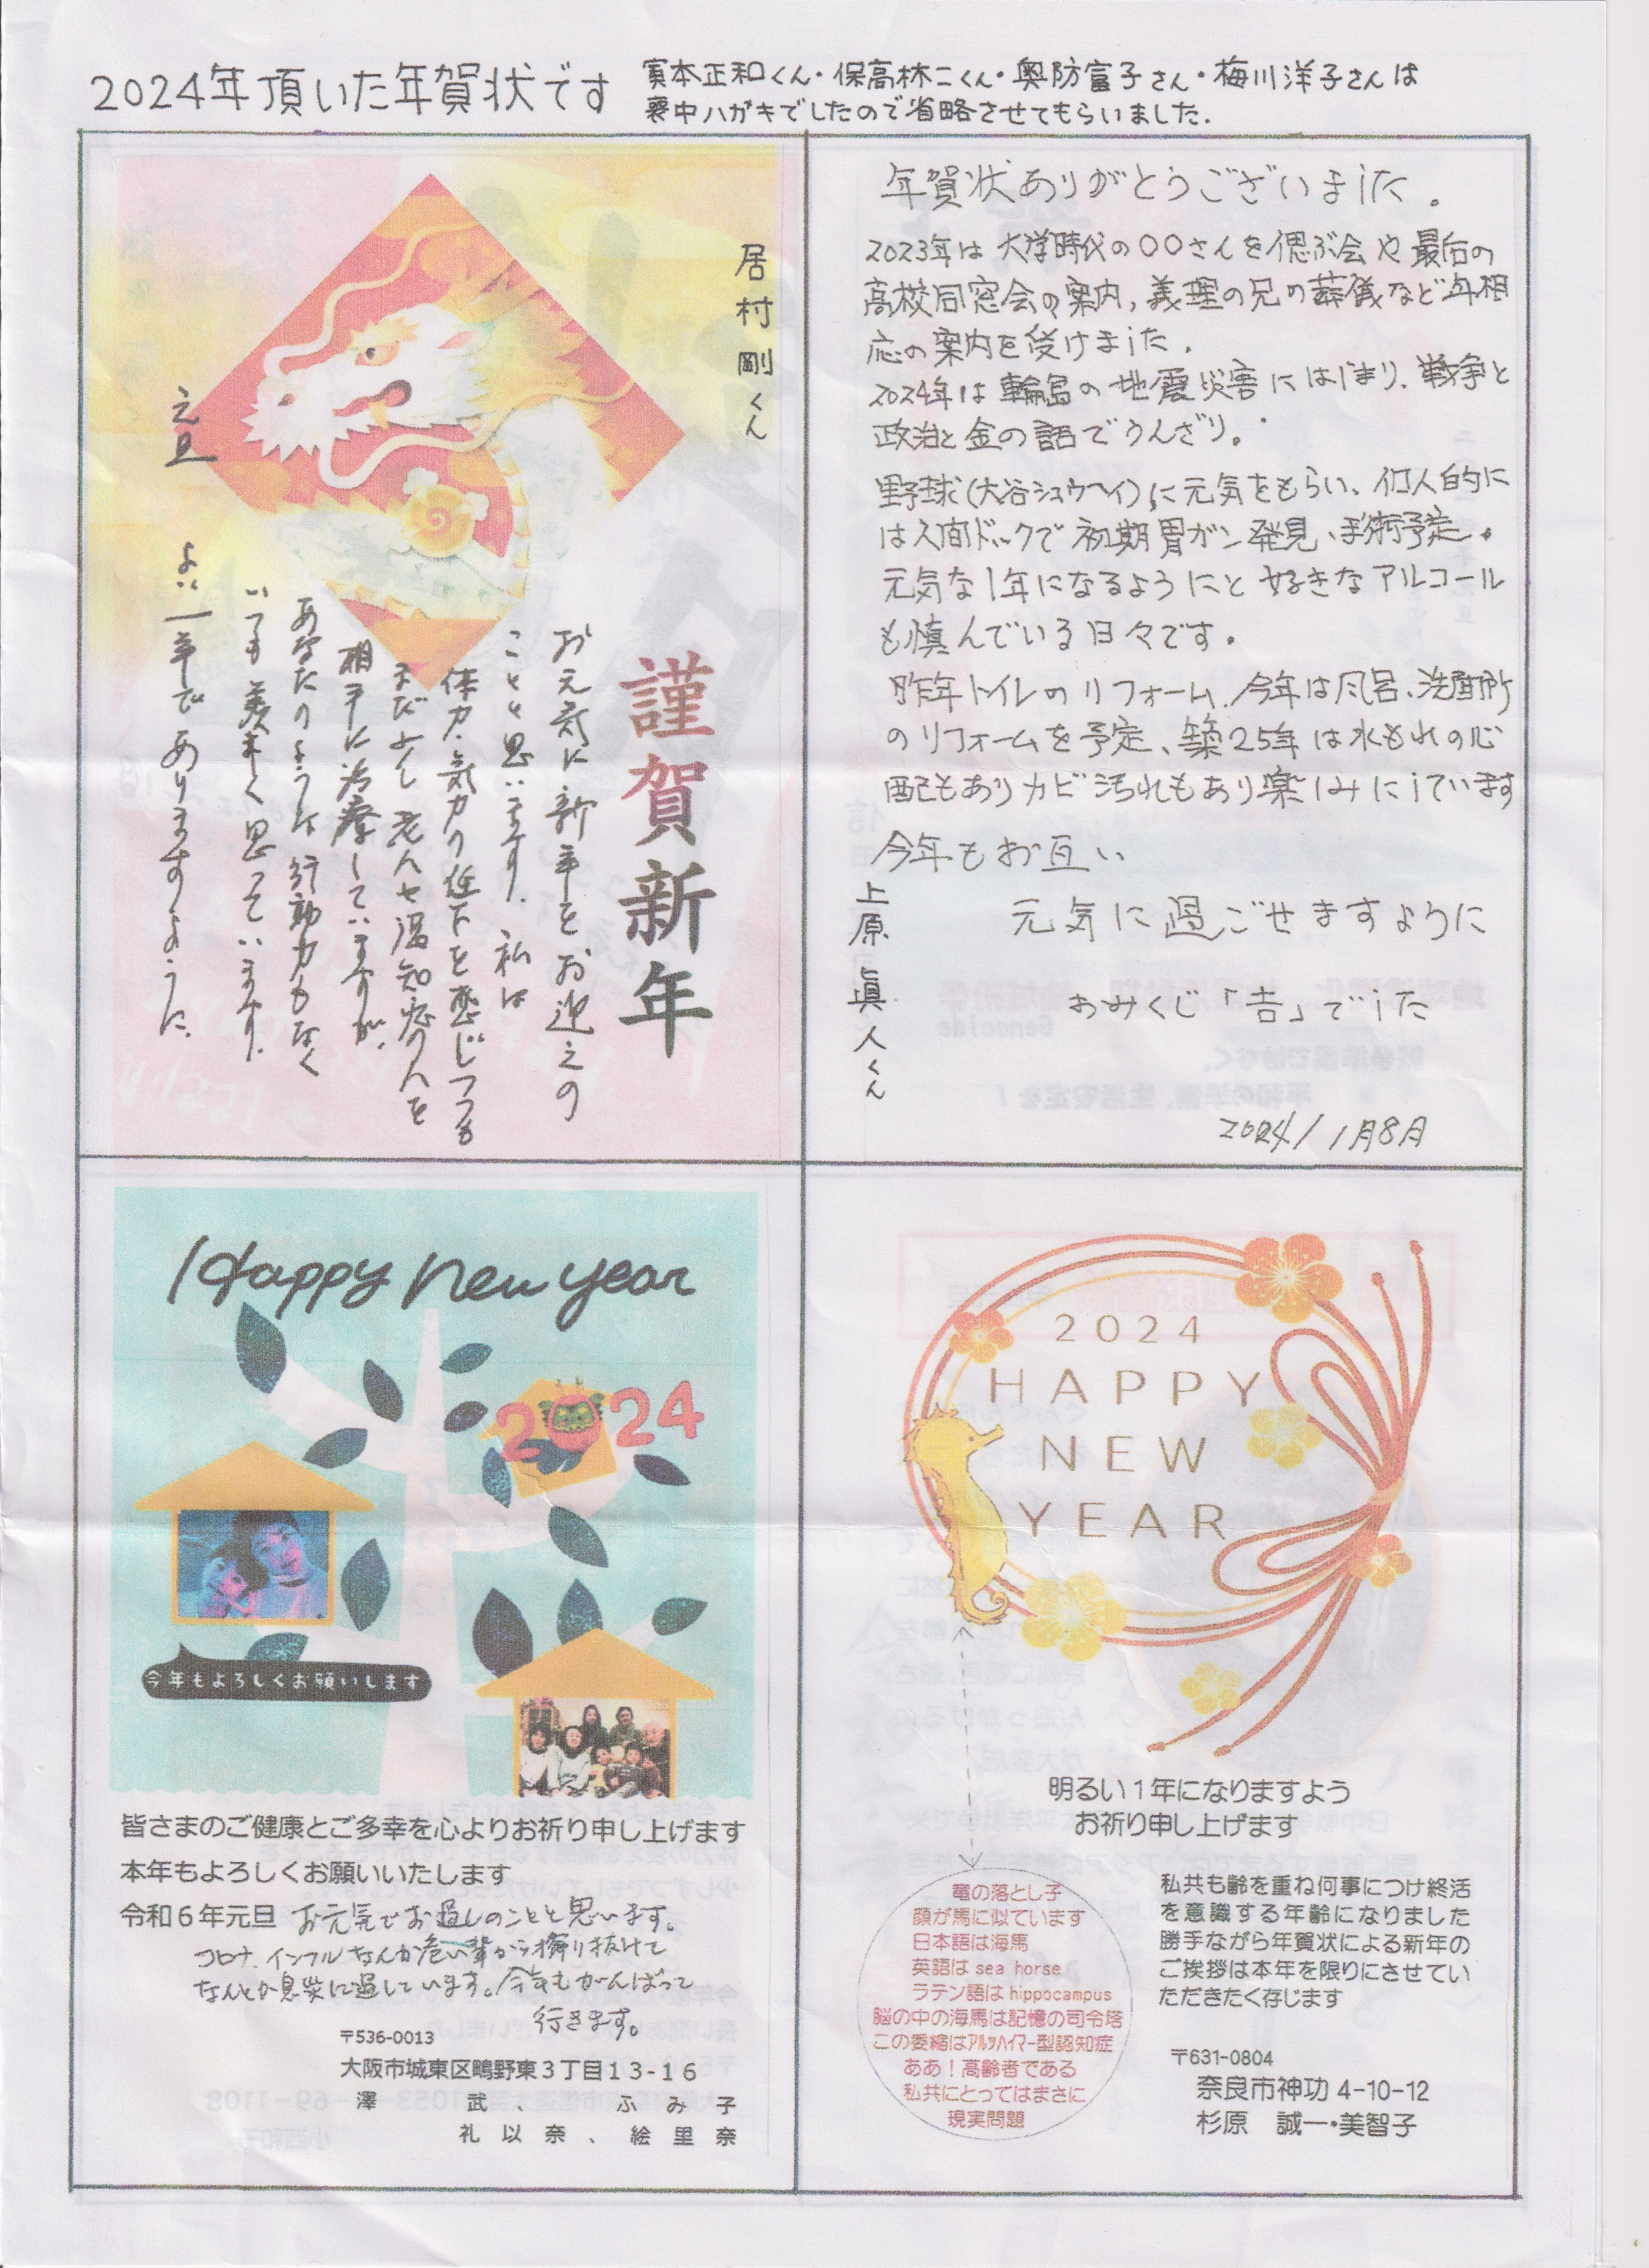 2024年頂いた年賀状です
實本正和くん・保高林二くん・奥防富子さん・梅川洋子さんは
喪中ハガキでしたので省略させてもらいました.
居村剛くん
謹賀新年
お元気に新年をお迎えの
ことと思います. 私は
体力・気力の低下を感じつつも
まだ少し老人や認知症の人を
相手に治療していますが、
あなたのような行動力もなく
いつも羨ましく思っています.
よい一年でありますように.
元旦
年賀状ありがとうございました.
2023年は大学時代の〇〇さんを偲ぶ会や最后の
高校同窓会の案内, 義理の兄の葬儀など年相
応の案内を受けました.
2024年は輪島の地震災害にはじまり、戦争と
政治と金の話でうんざり。
野球(大谷ショウヘイ)に元気をもらい、個人的に
は人間ドックで初期胃ガン発見、手術予定。
元気な1年になるようにと好きなアルコール
も慎んでいる日々です。
昨年トイレのリフォーム、今年は風呂、洗面所
のリフォームを予定、築25年は水もれの心
配もありカビ汚れもあり楽しみにしています
今年もお互い
元気に過ごせますように
おみくじ「吉」でした
上原眞人くん
2024/1月8日
Happy New year
2024
今年もよろしくお願いします
皆さまのご健康とご多幸を心よりお祈り申し上げます
本年もよろしくお願いいたします
令和6年元旦 お元気でお過しのことと思います。
コロナ、インフルなんか危い輩から擦り抜けて
なんとか息災に過しています。今年もがんばって
行きます。
〒536-0013
大阪市城東区鴫野東3丁目13-16
澤 武、ふみ子
礼以奈、絵里奈
2024
HAPPY
NEW
YEAR
明るい1年になりますよう
お祈り申し上げます
竜の落とし子
顔が馬に似ています
日本語は海馬
英語は sea horse
ラテン語は hippocampus
脳の中の海馬は記憶の司令塔
この委縮はｱﾙﾂﾊｲﾏｰ型認知症
ああ！高齢者である
私共にとってはまさに
現実問題
私共も齢を重ね何事につけ終活
を意識する年齢になりました
勝手ながら年賀状による新年の
ご挨拶は本年を限りにさせてい
ただきたく存じます
〒631-0804
奈良市神功 4-10-12
杉原 誠一・美智子